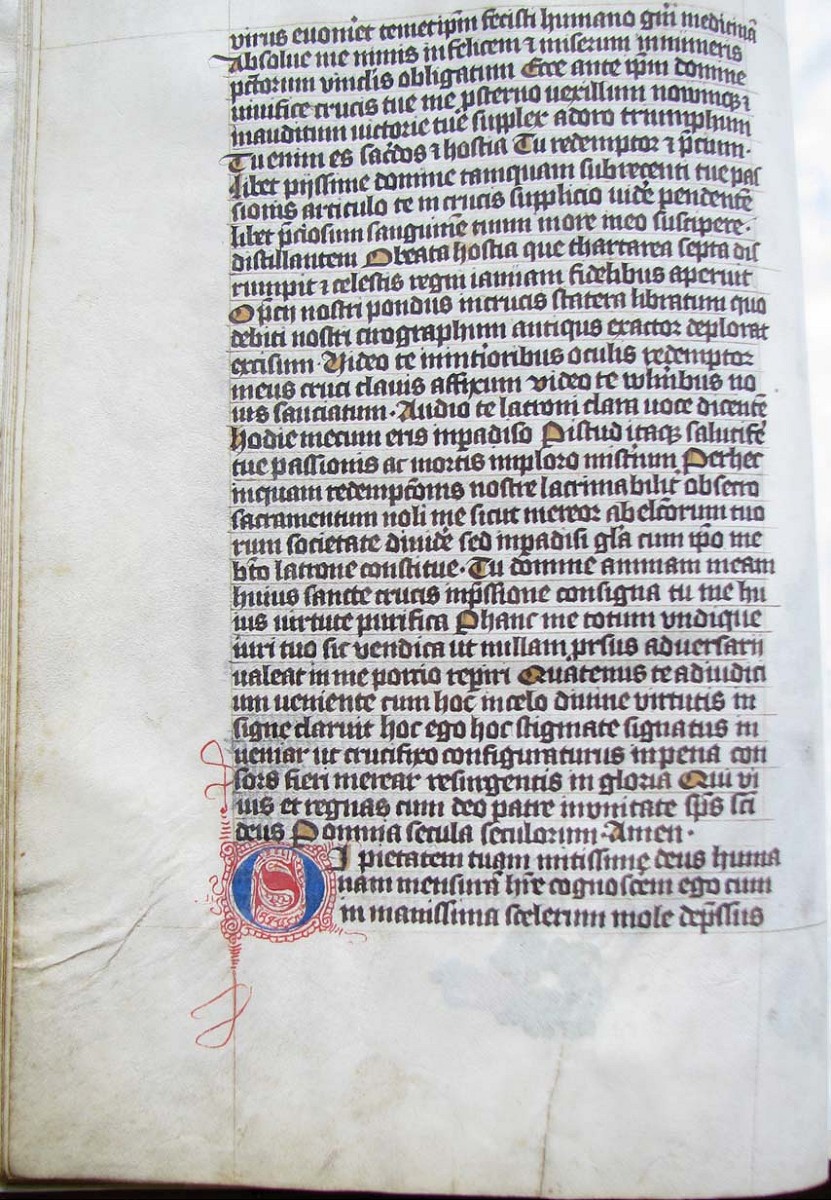 virus euomet temetipm fecisti humano gni medicinā
Absolue me nimis infelicem ⁊ miserum innumeris
pctorum vinclis obligatum Ecce ante ipm domne
uiuifice crucis tue me psterno uexillum
inauditum uictorie tue supplex adoro triumphum
Tu enim es sacdos ⁊ hostia Tu redemptor ⁊ pcium.
libet pijssime domine tamquam subrecenti tue pas
sionis articulo te in crucis supplicio uide pendentē
libet pciosum sanguinē tuum more meo suscipere.
distillantem O beata hostia que thartarea septa dis
rumpit ⁊ celestis regni iamiam fidelibus aperuit
O pcij nostri pondus in crucis statera libratum quo
debiti nostri cirographum antiqus exactor deplorat
excisum. Video te interioribus oculis redemptor
meus cruci clauis affixum video te wlnibus no
uis sauciatum. Audio te latroni clara uoce dicentē
hodie mecum eris in padiso P istud itaqꝫ salutife
tue passionis ac mortis imploro mistrium Per hec
inquam redempcōnis nostre lacrimabilit obsecro
sacramentum noli me sicut mereor ab elcorum tuo
rum societate diuide sed in padisi gla cum ipo me
bto latrone constitue. Tu domine animam meam
huius sancte crucis inpssione consigna tu me hu
ius uirtute purifica P hanc me totum vndique
iuri tuo sic vendica ut nullam prsus aduersarij
ualeat in me porcio repiri Quatenus te ad iudici
um ueniente cum hoc in celo diuine virtutis in
signe claruit hoc ego hoc stigmate signatus in
ueniar ut crucifixo configuraturus in pena con
sors fieri merear resurgentis in gloria Qui vi
uis et regnas cum deo patre in vnitate sps sci
deus P omnia secula seculorum. Amen.
SI pietatem tuam mitissime deus huma
nam mensurā hre cognoscem ego cum
in manissima scelerum mole depssus